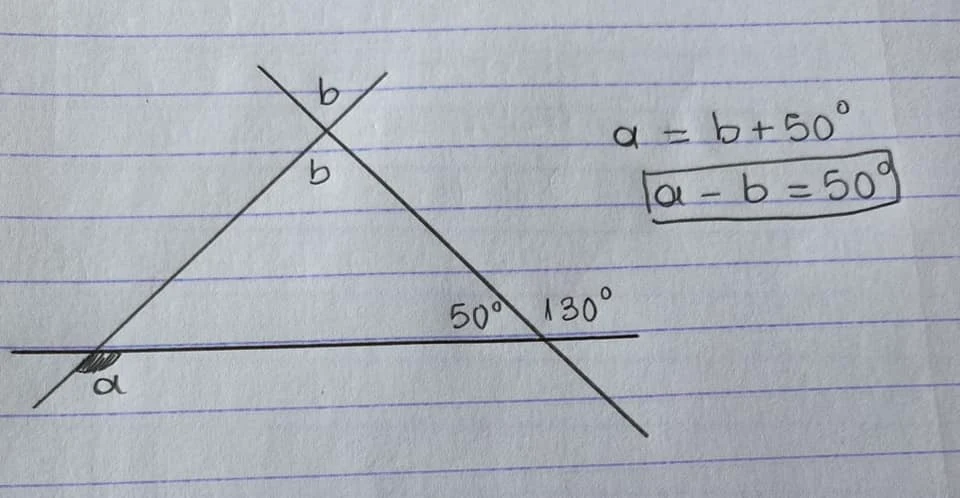 b
a = b + 50°
b
a - b = 50°
50° 130°
a